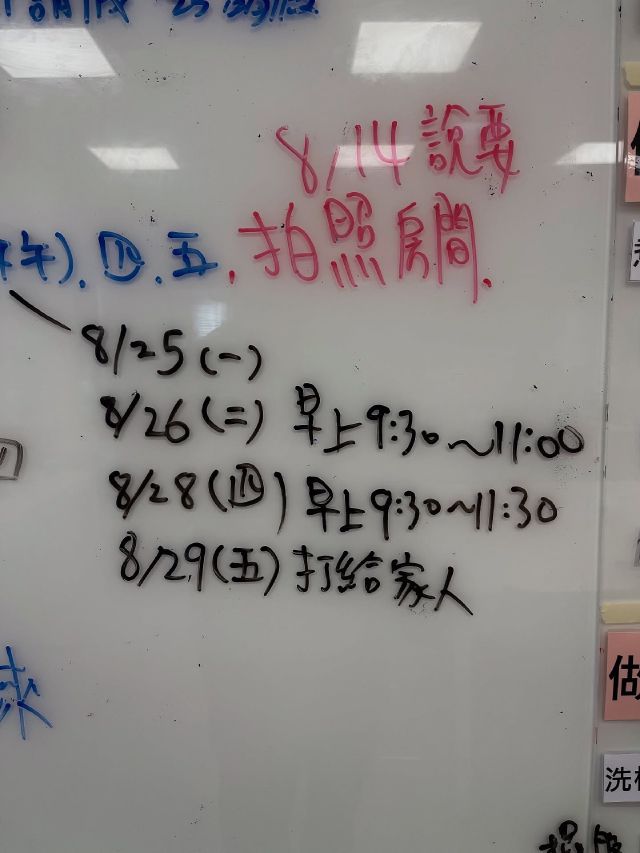 8/14 說要
四.五.拍照房間.
8/25(一)
8/26(二) 早上9:30~11:00
8/28(四) 早上9:30~11:30
8/29(五) 打給家人
做
洗